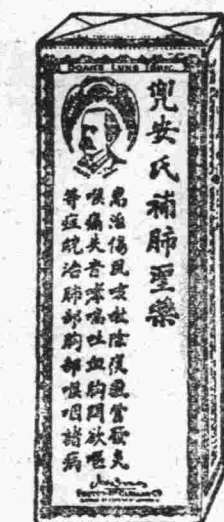 DOAN'S LUNG TONIC
兜安氏補肺聖藥
專治傷風咳嗽痰侵氣管發炎
喉痛失音哮喘吐血胸悶欲嘔
等症能治肺部胸部喉咽諸病